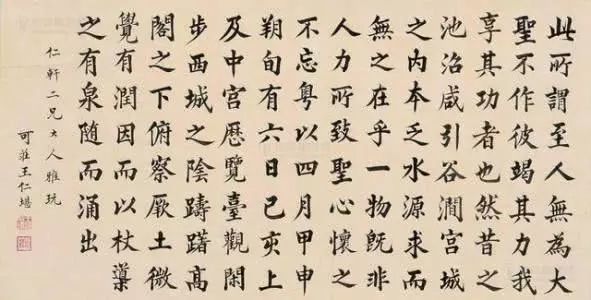 此所謂至人無為大
聖不作彼竭其力我
享其功者也然昔之
池沼咸引谷澗宮城
之內本乏水源求而
無之在乎一物既非
人力所致聖心懷之
不忘粵以四月甲申
朔旬有六日己亥上
及中宮歷覽臺觀閑
步西城之陰躊躇高
閣之下俯察厥土微
覺有潤因而以杖導
之有泉隨而涌出
仁軒二兄大人雅玩
可莊王仁堪